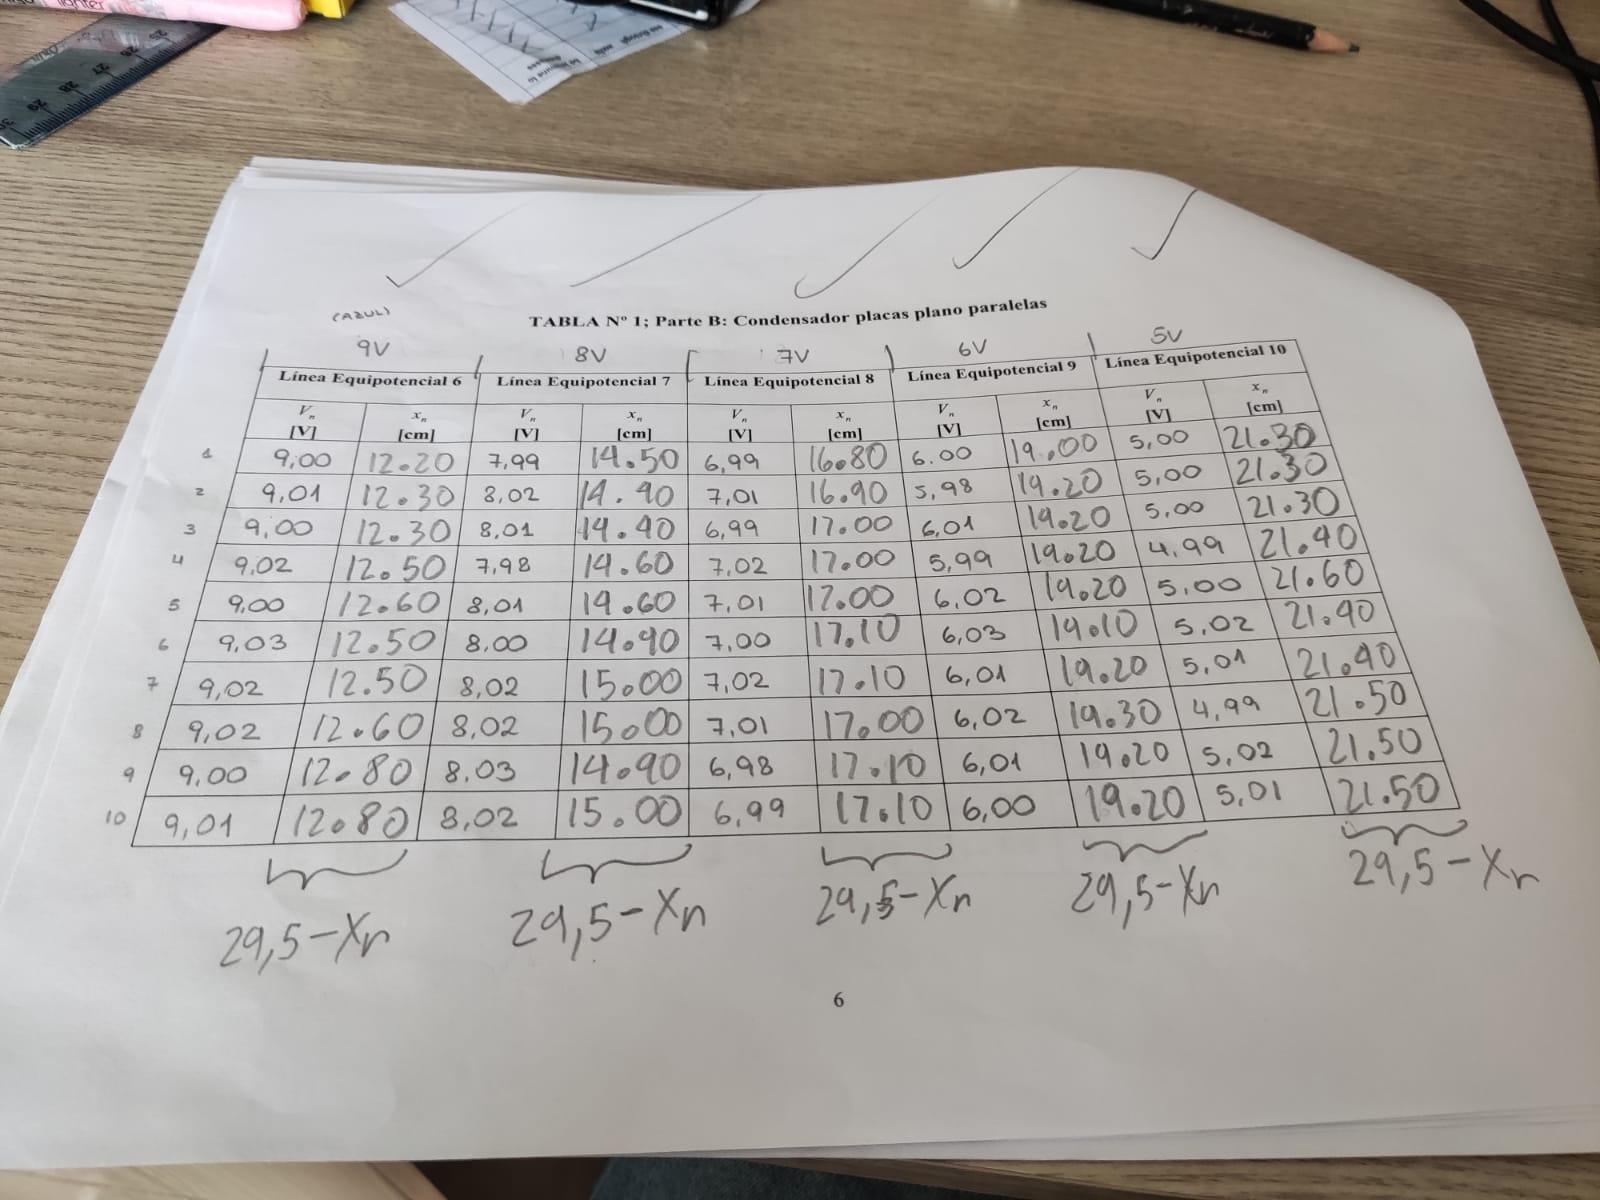 lighter
25 26 27 28 29 30
(AZUL)
TABLA Nº 1; Parte B: Condensador placas plano paralelas
9V 8V 7V 6V 5V
Línea Equipotencial 6 Línea Equipotencial 7 Línea Equipotencial 8 Línea Equipotencial 9 Línea Equipotencial 10
Vn [V] xn [cm] Vn [V] xn [cm] Vn [V] xn [cm] Vn [V] xn [cm] Vn [V] xn [cm]
1 9,00 12.20 7,99 14.50 6,99 16.80 6.00 19.00 5,00 21.30
2 9,01 12.30 8,02 14.40 7,01 16.90 5,98 19.20 5,00 21.30
3 9,00 12.30 8,01 14.40 6,99 17.00 6,01 19.20 5,00 21.30
4 9,02 12.50 7,98 14.60 7,02 17.00 5,99 19.20 4,99 21.40
5 9,00 12.60 8,01 14.60 7,01 17.00 6,02 19.20 5,00 21.60
6 9,03 12.50 8,00 14.90 7,00 17.10 6,03 19.10 5,02 21.40
7 9,02 12.50 8,02 15.00 7,02 17.10 6,01 19.20 5,01 21.40
8 9,02 12.60 8,02 15.00 7,01 17.00 6,02 19.30 4,99 21.50
9 9,00 12.80 8.03 14.90 6,98 17.10 6,01 19.20 5,02 21.50
10 9,01 12.80 8,02 15.00 6,99 17.10 6,00 19.20 5,01 21.50
29,5-Xn 29,5-Xn 29,5-Xn 29,5-Xn 29,5-Xn
6